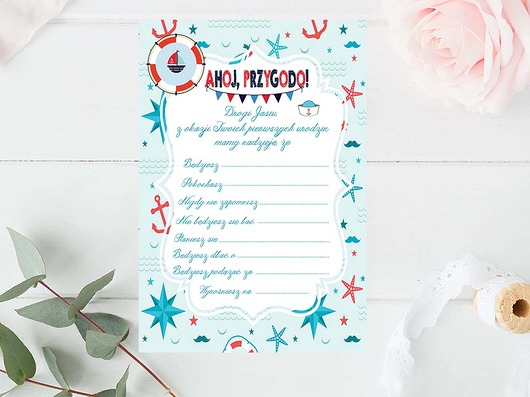 AHOJ, PRZYGODO!
Drogi Jasiu,
z okazji Twoich pierwszych urodzin
mamy nadzieję, że
Będziesz
Pokochasz
Nigdy nie zapomnisz
Nie będziesz się bać
Staniesz się
Będziesz dbać o
Będziesz podążać za
Wyrośniesz na